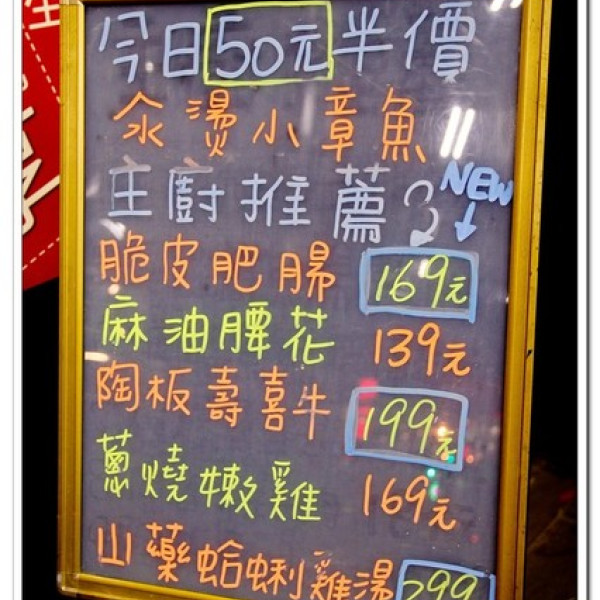 今日50元半價
汆燙小章魚
主廚推薦
NEW
脆皮肥腸 169元
麻油腰花 139元
陶板壽喜牛 199元
蔥燒嫩雞 169元
山藥蛤蜊雞湯 299